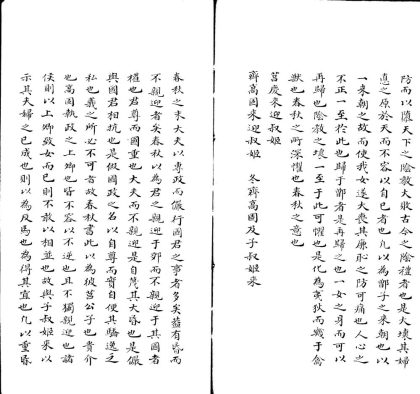 防而以隳天下之陰教大敗古今之陰種者也是大壊其婦
惪之原於天而不容以自已者也凡以為鄫子之來朝也以
一來朝之故而使我女遂大喪其廉恥之防可痛也人心之
不正一至於此也歸于鄫者是再歸之也一女之身而可以
再歸也陰教之壞一至于此可懼也是化為夷狄而戕于禽
獸也春秋之所深懼也春秋之意也
莒慶來迎叔姬
齊高固來迎叔姬　冬齊高固及子叔姬來
春秋之末大夫以專政而儼行國君之事者多矣蓋有昏而
不親迎者矣春秋以為君之親迎于郊而不親迎于其國者
權也君尊而國重也大夫而不親迎是自蔑其大昏也是儼
與國君相抗也是假國政之名以自尊而實自便其驕逸之
私也義之所必不可者故春秋書此以為彼莒公子也貴介
也高固執政之上卿也皆不容以不逆也且不獨親迎也諸
侯則以上卿致女而已則不敢以相並也故與子叔姬來以
示其夫婦之已成也則以為反馬也為得其宜也凡以重昏